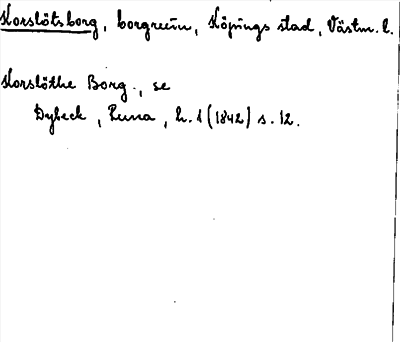 Korslötsborg, borgruin, Köpings stad, Västm. l.
Korslöthe Borg., se
Dybeck, Runa, h. 1 (1842) s. 12.